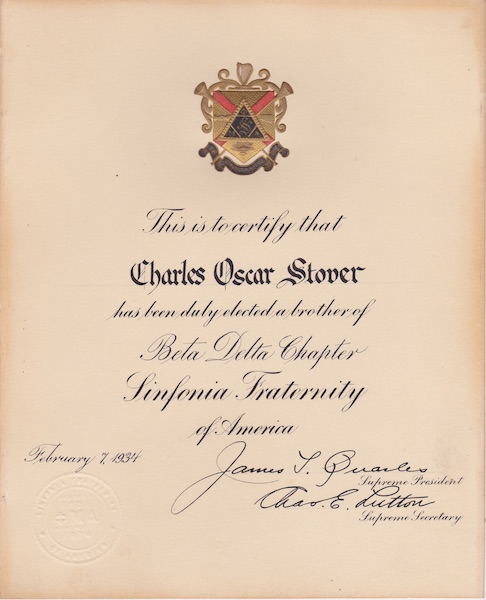 This is to certify that
Charles Oscar Stover
has been duly elected a brother of
Beta Delta Chapter
Sinfonia Fraternity
of America
February 7, 1934
James T. Quarles
Supreme President
Chas. E. Lutton
Supreme Secretary